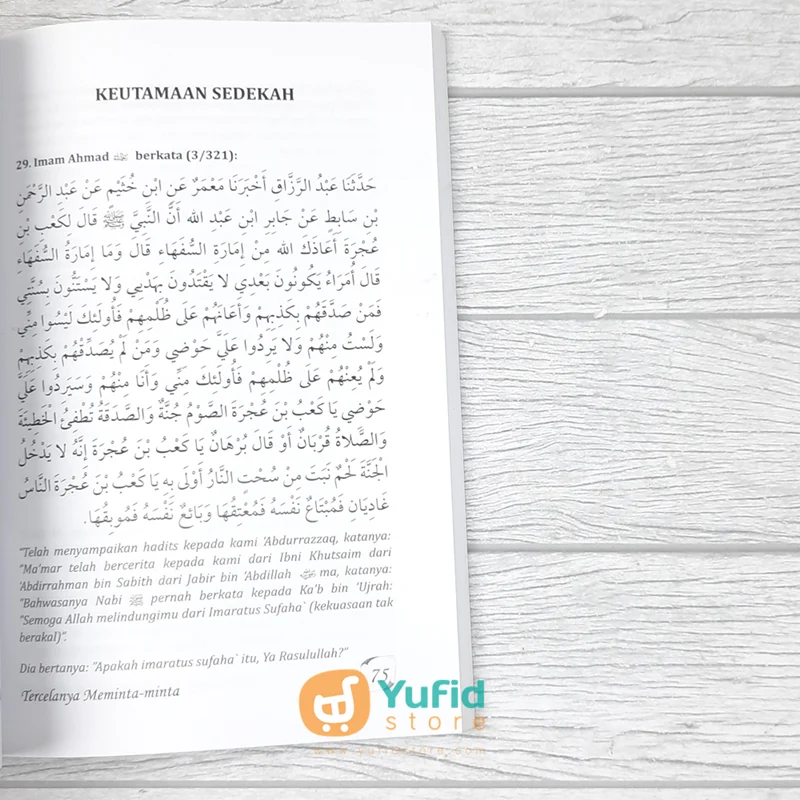 KEUTAMAAN SEDEKAH
29. Imam Ahmad berkata (3/321):
حَدَّثَنَا عَبْدُ الرَّزَّاقِ أَخْبَرَنَا مَعْمَرٌ عَنِ ابْنِ خُثَيْمٍ عَنْ عَبْدِ الرَّحْمَنِ
بْنِ سَابِطٍ عَنْ جَابِرِ ابْنِ عَبْدِ الله أَنَّ النَّبِيَّ ﷺ قَالَ لِكَعْبِ بْنِ
عُجْرَةَ أَعَاذَكَ الله مِنْ إِمَارَةِ السُّفَهَاءِ قَالَ وَمَا إِمَارَةُ السُّفَهَاءِ
قَالَ أُمَرَاءُ يَكُونُونَ بَعْدِي لَا يَقْتَدُونَ بِهَدْيِي وَلَا يَسْتَنُّونَ بِسُنَّتِي
فَمَنْ صَدَّقَهُمْ بِكَذِبِهِمْ وَأَعَانَهُمْ عَلَى ظُلْمِهِمْ فَأُولَئِكَ لَيْسُوا مِنِّي
وَلَسْتُ مِنْهُمْ وَلَا يَرِدُوا عَلَيَّ حَوْضِي وَمَنْ لَمْ يُصَدِّقْهُمْ بِكَذِبِهِمْ
وَلَمْ يُعِنْهُمْ عَلَى ظُلْمِهِمْ فَأُولَئِكَ مِنِّي وَأَنَا مِنْهُمْ وَسَيَرِدُوا عَلَيَّ
حَوْضِي يَا كَعْبُ بْنَ عُجْرَةَ الصَّوْمُ جُنَّةٌ وَالصَّدَقَةُ تُطْفِئُ الْخَطِيئَةَ
وَالصَّلَاةُ قُرْبَانٌ أَوْ قَالَ بُرْهَانٌ يَا كَعْبُ بْنَ عُجْرَةَ إِنَّهُ لَا يَدْخُلُ
الْجَنَّةَ لَحْمٌ نَبَتَ مِنْ سُحْتٍ النَّارُ أَوْلَى بِهِ يَا كَعْبُ بْنَ عُجْرَةَ النَّاسُ
غَادِيَانِ فَمُبْتَاعٌ نَفْسَهُ فَمُعْتِقُهَا وَبَائِعٌ نَفْسَهُ فَمُوبِقُهَا.
"Telah menyampaikan hadits kepada kami 'Abdurrazzaq, katanya:
"Ma'mar telah bercerita kepada kami dari Ibni Khutsaim dari
'Abdirrahman bin Sabith dari Jabir bin 'Abdillah ma, katanya:
"Bahwasanya Nabi ﷺ pernah berkata kepada Ka'b bin 'Ujrah:
"Semoga Allah melindungimu dari Imaratus Sufaha` (kekuasaan tak
berakal)".
Dia bertanya: "Apakah imaratus sufaha` itu, Ya Rasulullah?"
75
Tercelanya Meminta-minta
Yufid
store
www.yufidstore.com